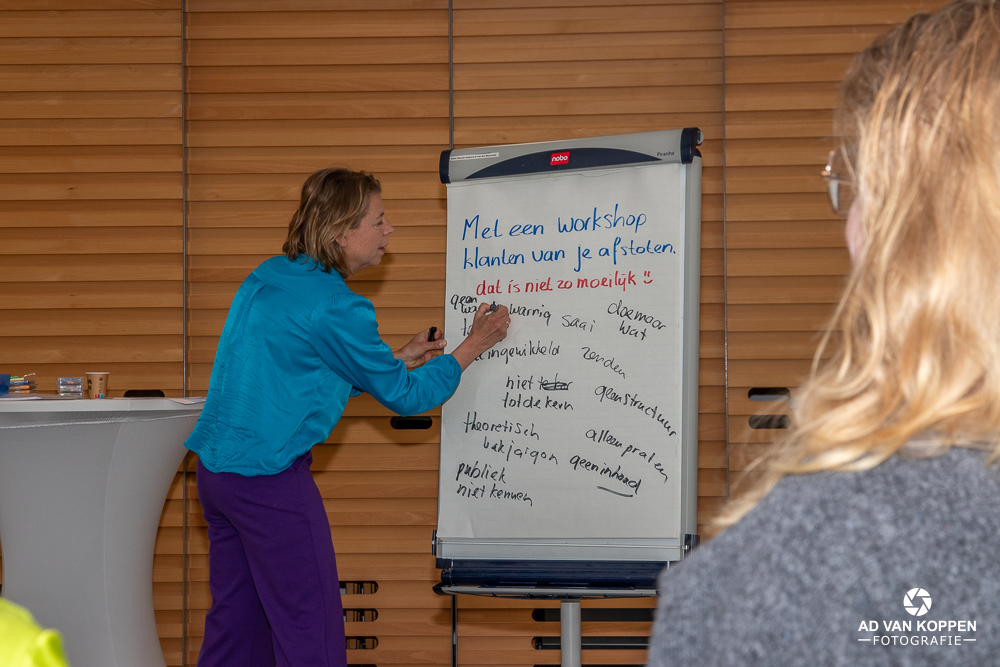 nobo
Piranha
Met een workshop
klanten van je afstoten.
dat is niet zo moeilijk
geen
warrig saai
doe maar
wat
ingewikkeld
zenden
niet
tot de kern
geen structuur
theoretisch
vakjargon
alleen praten
geen inhoud
publiek
niet kennen
AD VAN KOPPEN
FOTOGRAFIE